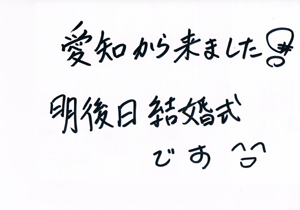 愛知から来ました!
明後日結婚式
です ^日^